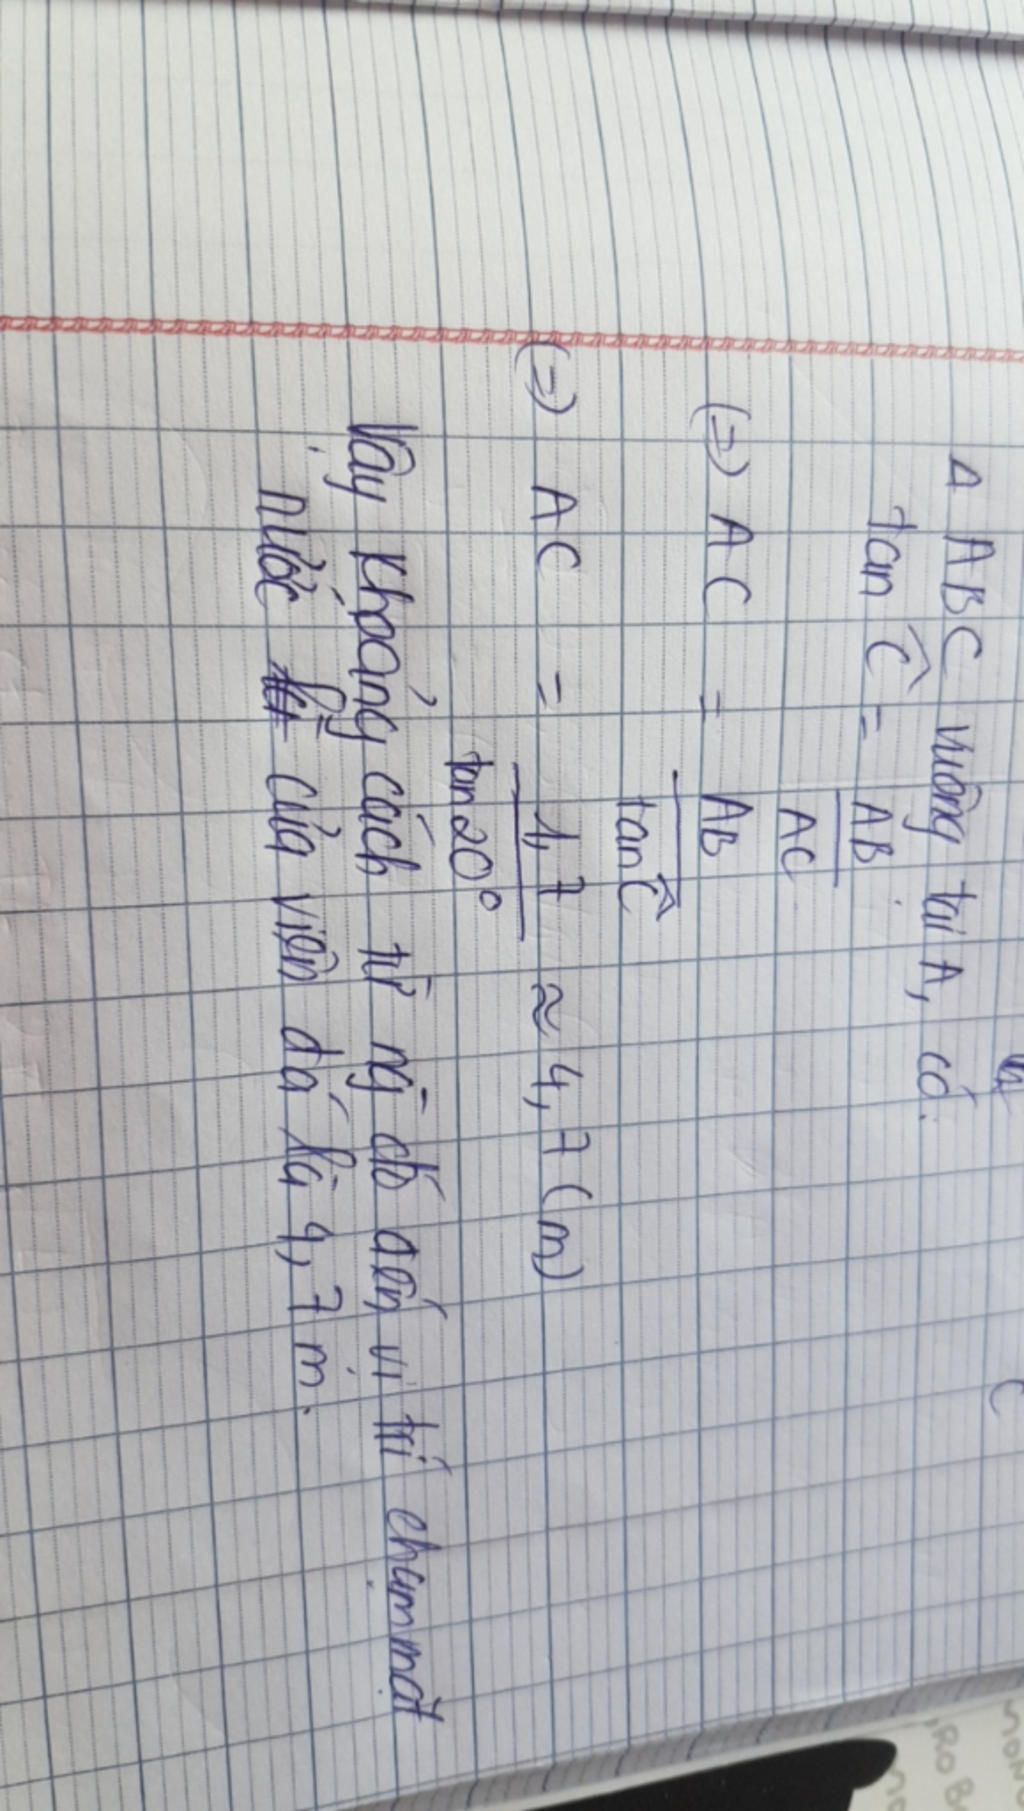 C
Δ ABC vuông tại A, có:
tan Ĉ = AB
AC
(=) AC = AB
tan Ĉ
(=) AC = 1,7 ≈ 4,7 (m)
tan 20°
Vậy khoảng cách từ ng đó đến vị trí chạm mặt
nước của viên đá là 4,7 m.